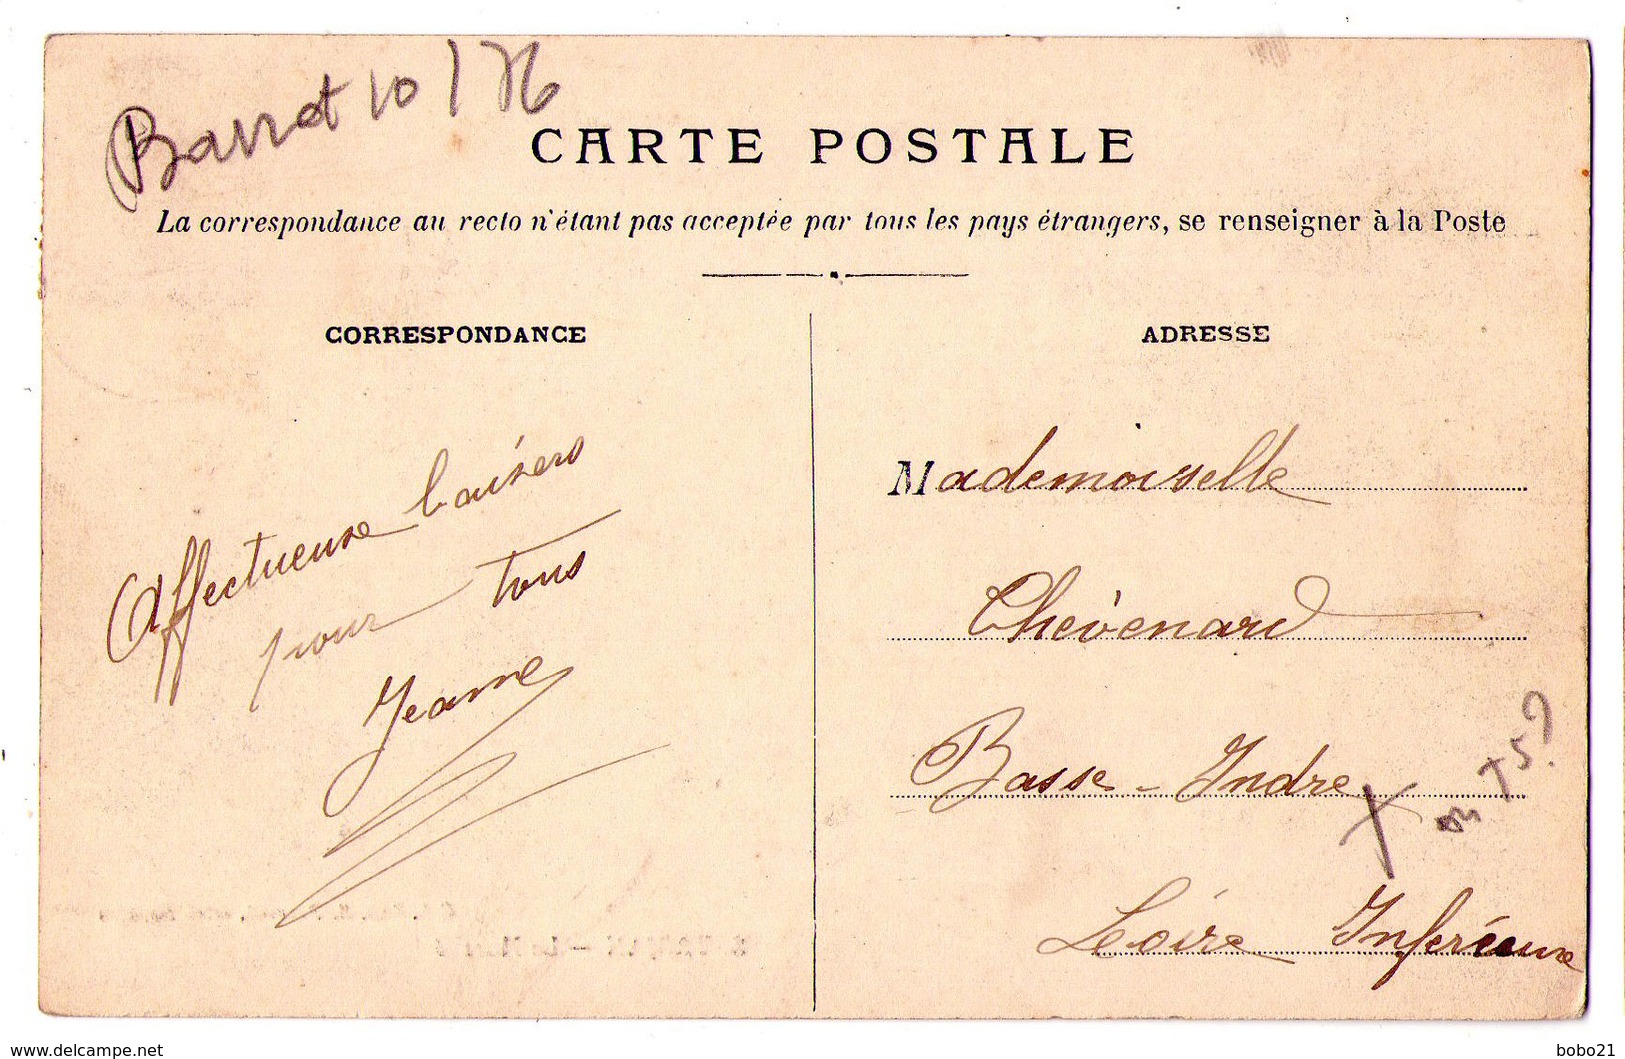 Barret 10 / 76
CARTE POSTALE
La correspondance au recto n'étant pas acceptée par tous les pays étrangers, se renseigner à la Poste
CORRESPONDANCE
Affectueuse baisers
pour tous
Jeanne
ADRESSE
Mademoiselle
Chévenard
Basse-Indre
X ou T5?
Loire Inférieure
www.delcampe.net
bobo21